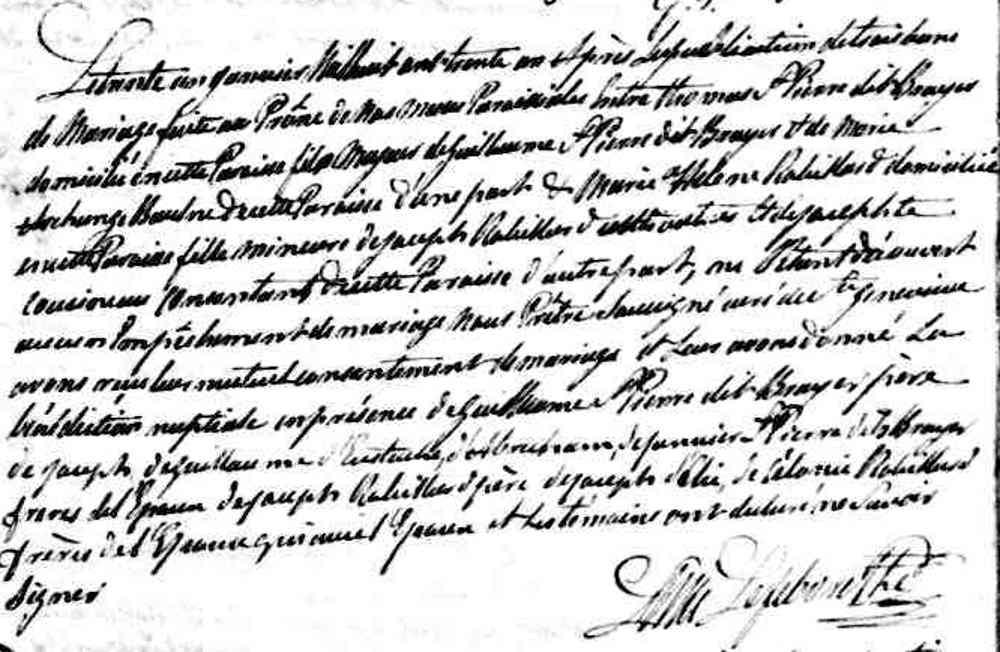 Le trente un janvier Mil huit cent trente un et après la publication de trois bans
de Mariage faite au Prône de Nos Messes Paroissiales Entre thomas St Pierre dit Breyer
domicilié en cette Paroisse fils Majeur de Guillaume St Pierre dit Breyer et de Marie
Archange de cette Paroisse d'une part & Marie Helene Robillard domiciliée
en cette Paroisse fille mineure de joseph Robillard et de josephte
consentants de cette Paroisse d'autre part, ne s'étant découvert
aucun Empêchement de mariage Nous Prêtre Soussigné curé de Ste Genevieve
avons reçu leur mutuel consentement de mariage et Leur avons donné La
bénédiction nuptiale en présence de Guillaume St Pierre dit Breyer père
de joseph, de guillaume d'Eustache, d'abraham, de janvier St Pierre dit Breyer
freres de l'Epoux de joseph Robillard père de joseph d'Elie, de Robillard
frères de l'Epouse qui avec l'Epoux et les témoins ont déclaré ne Savoir
signer
Lefebvre Ptre